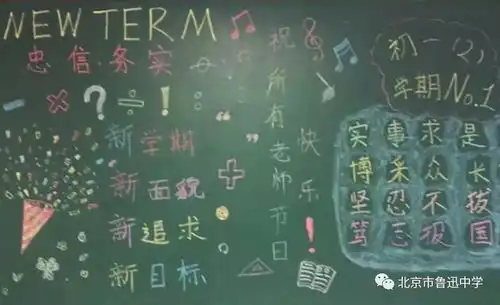 NEW TERM
忠信·务实
新学期
新面貌
新追求
新目标
祝所有老师节日
快乐!
初一(2)
学期No.1
实事求是
博采众长
坚忍不拔
笃志报国
北京市鲁迅中学